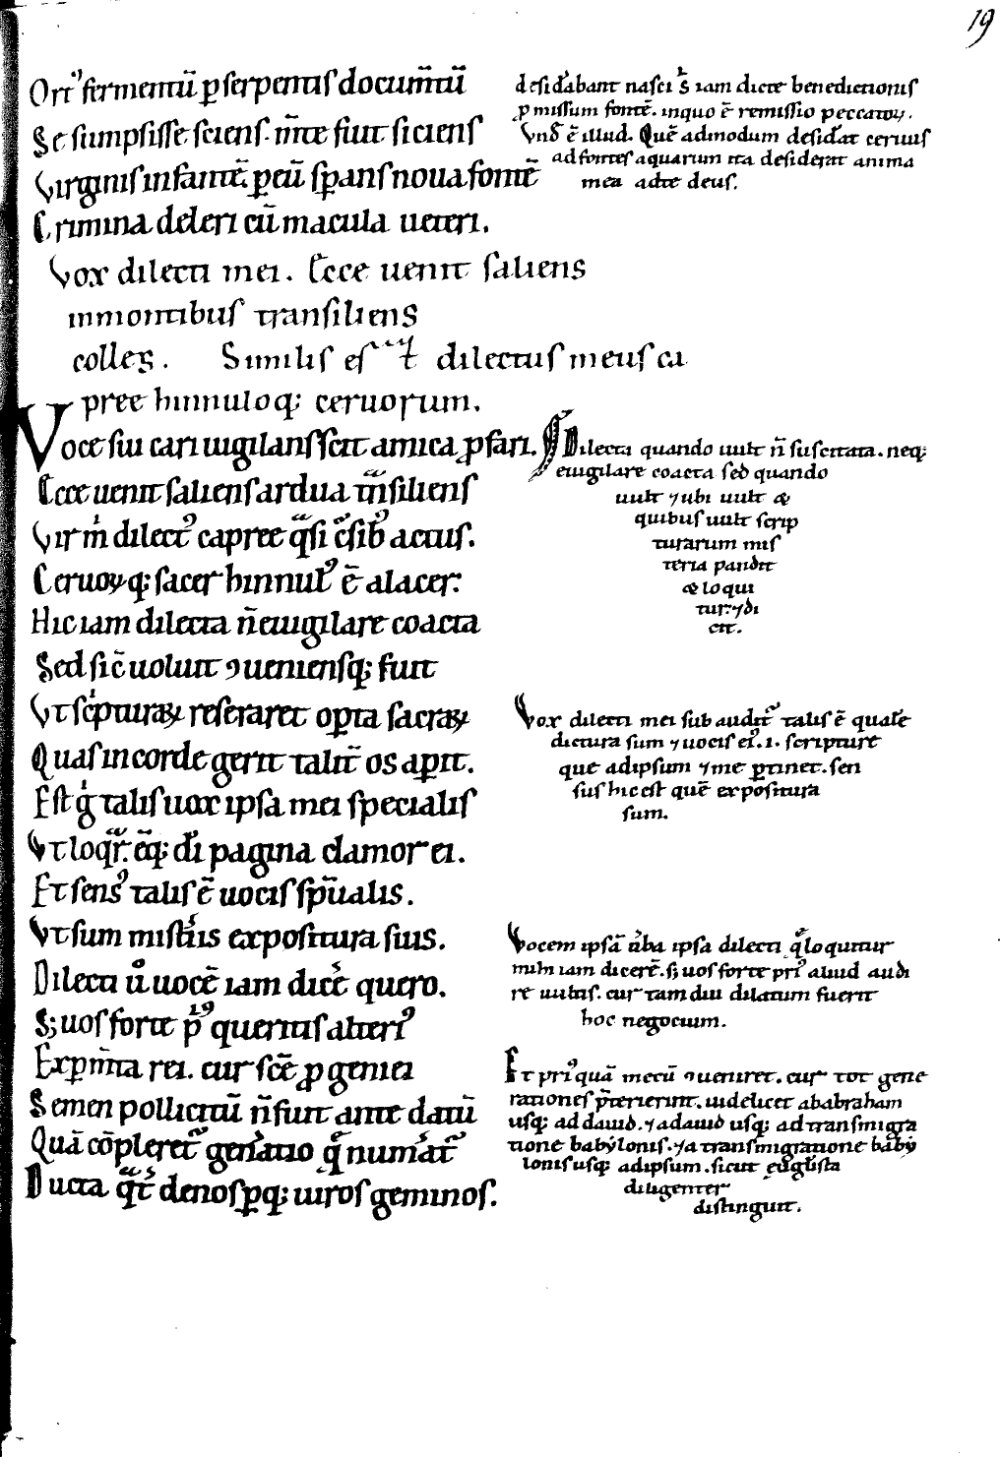 19
Ort᾿ fermentū ꝑ serpentis documtū
Se sumpsisse sciens. mte fiut siciens
Virginis infantē. ꝑ eū spans noua fontē
Crimina deleri cū macula ueteri.
desidabant nasci s iam dicte benedictionis
ꝓmissum fontē. inquo ē remissio peccatoꝝ.
Vnd ē illud. Quē admodum desidat ceruus
ad fontes aquarum ita desiderat anima
mea adte deus.
Vox dilecti mei. Ecce uenit saliens
inmontibus transiliens
colles. Similis est dilectus meus ca
pree hinnuloq; ceruorum.
Voce sui cari uigilans scit amica ꝓfari.
Ecce uenit saliens ardua tnsiliens
Vir m dilect᾿ capree qsi csib᾿ actus.
Ceruoꝝq; sacer hinnul᾿ ē alacer:
Hic iam dilecta ñ euigilare coacta
Sed sic̄ uoluit ꝯueniensq; fuit
Vt scpturaꝝ reseraret opta sacraꝝ
Quas in corde gerit talit̄ os aꝑit.
Est g talis uox ipsa mei specialis
Vt loqr. eq; di pagina clamor ei.
Et sens᾿ talis ē uocis spūalis.
Vt sum mistiis expositura suis.
Dilecti ūo uocē iam dicē quero.
S; uos forte p᾿ us queritis alteri᾿
Exꝑmta rei. cur scē ꝓgeniei
Semen pollicitū ñ fuit ante datū
Quā cōpleret᾿ genatio q numat᾿
Ducta qt denos ꝑq; uiros geminos.
Dilecta quando uult ñ suscitata. neq;
euigilare coacta sed quando
uult ⁊ ubi uult æ
quibus uult scrip
turarum mis
teria pandit
æ loqui
tur: ⁊ di
cit.
Vox dilecti mei sub audit᾿ talis ē qualē
dictura sum ⁊ uocis ei᾿. i. scripture
que adipsum ⁊ me ꝑtinet. sen
sus hic est quē expositura
sum.
Vocem ipsā uba ipsa dilecti q loquitur
mihi iam dicerē. s; uos forte pri᾿ aliud audi
re uultis. cur tam diu dilatum fuerit
hoc negocium.
Et pri᾿ quā mecū ꝯueniret. cur tot gene
rationes pterierint. uidelicet ababraham
usq; ad dauid. ⁊ adauid usq; ad transmigra
tione babylonis. ⁊ a transmigratione baby
lonis usq; adipsum. sicut euglista
diligenter
distinguit.